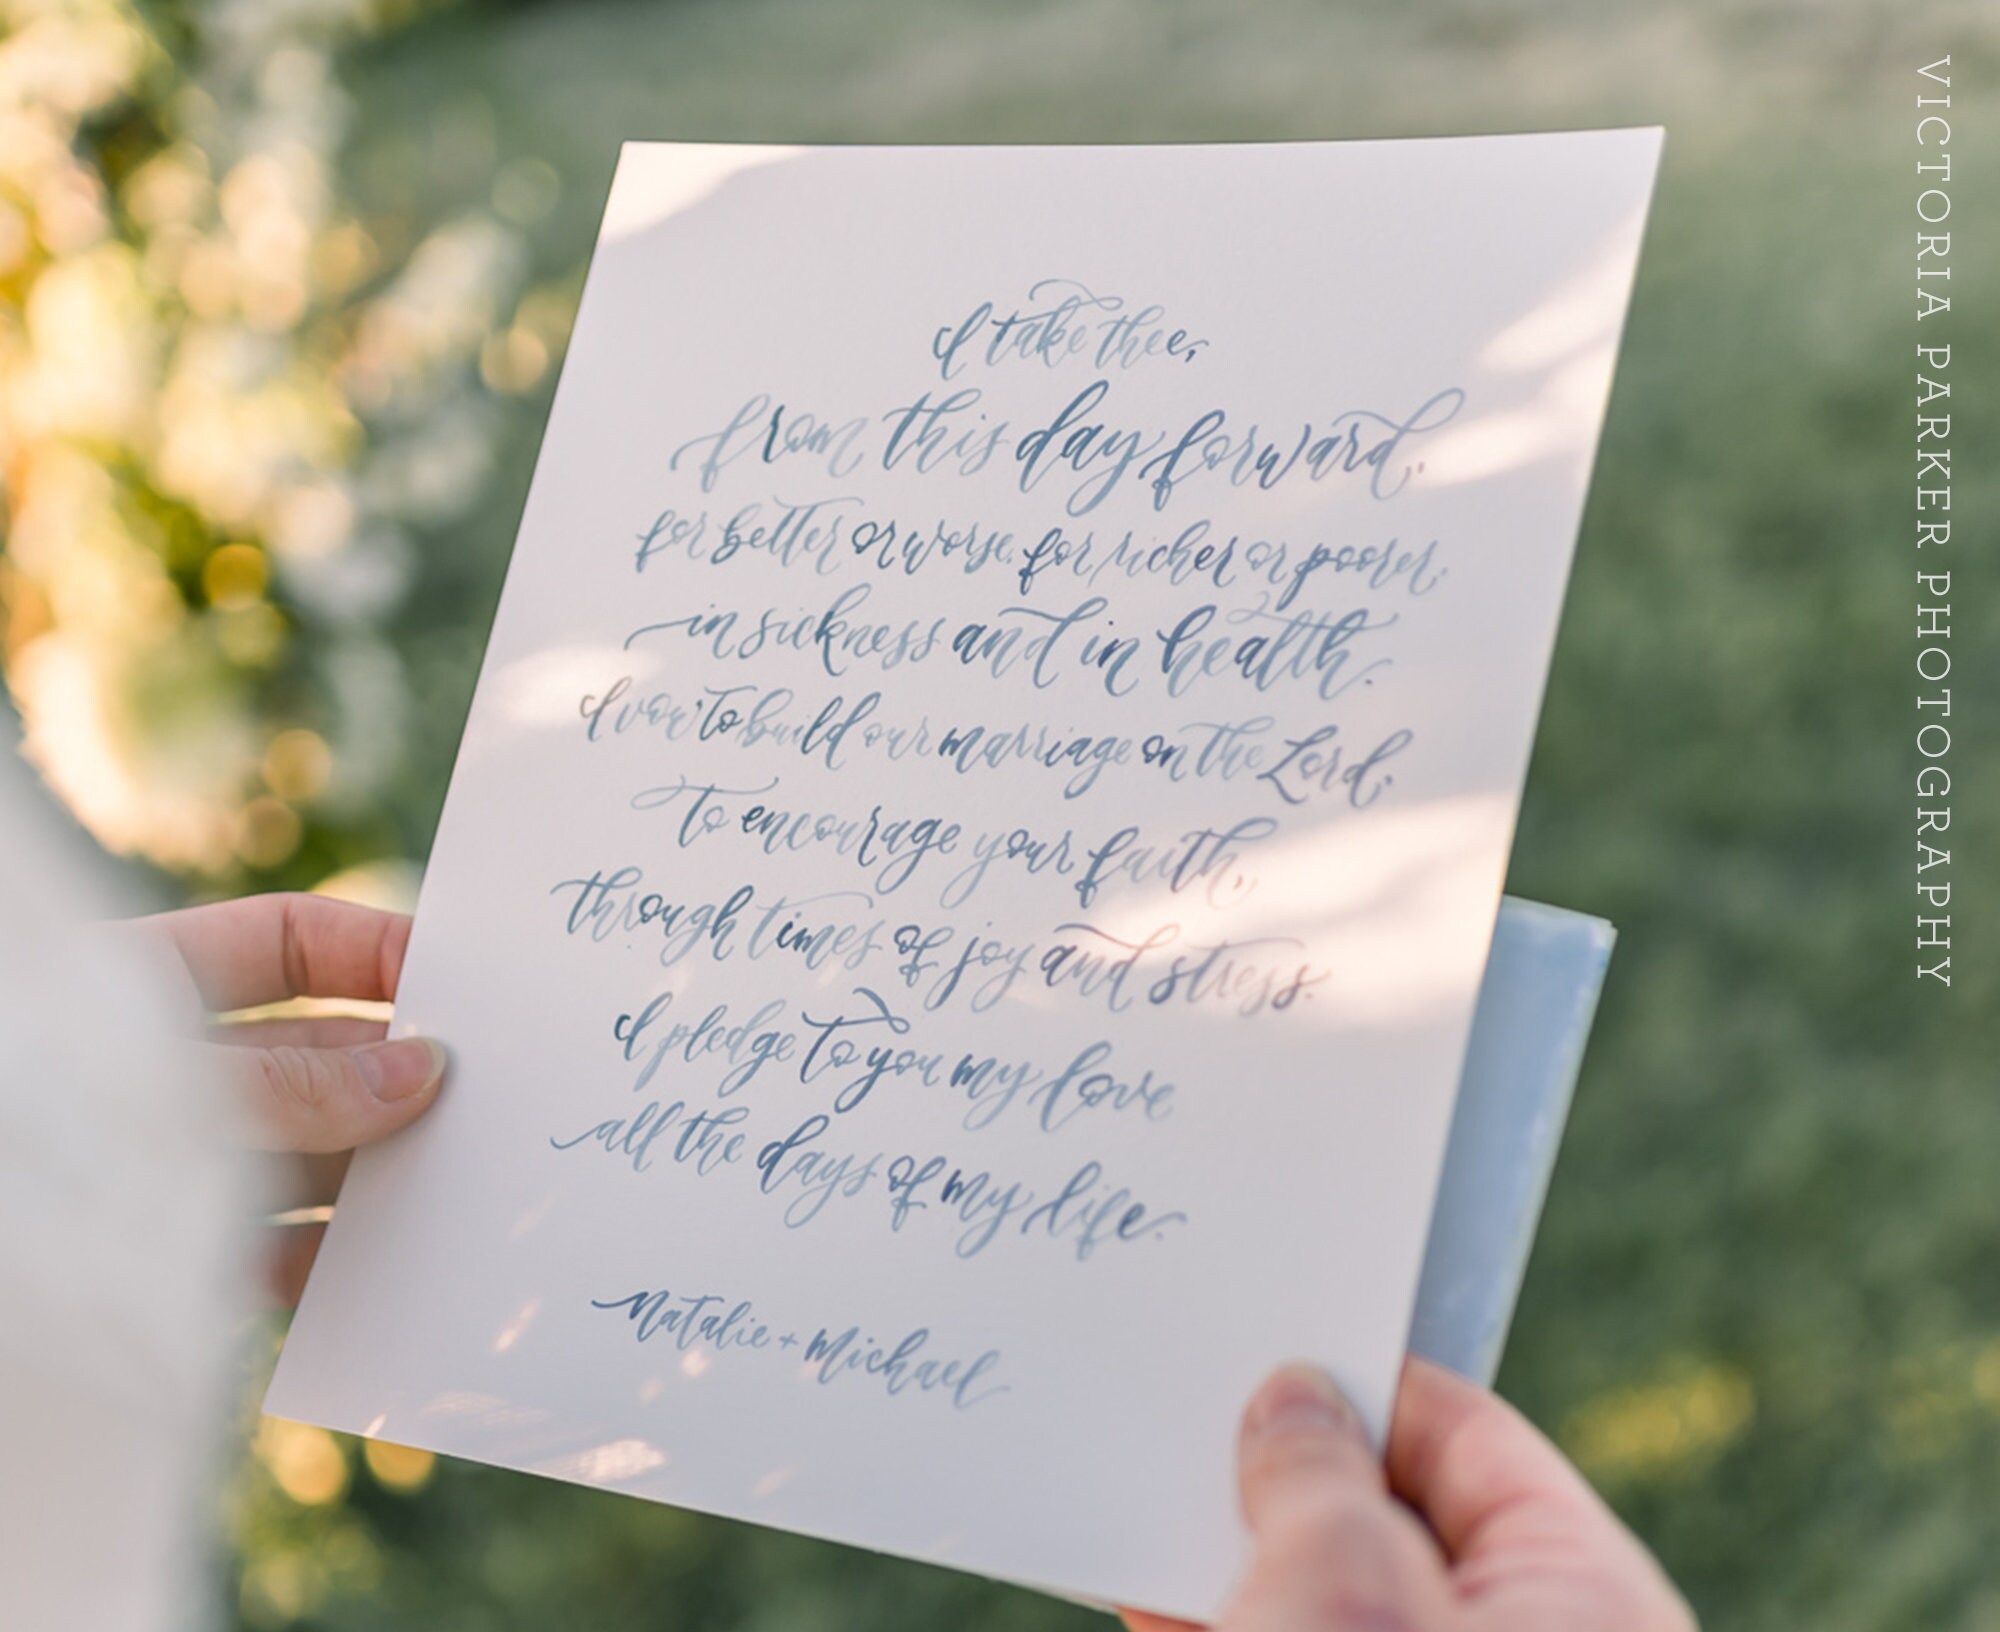 I take thee,
from this day forward,
for better or worse, for richer or poorer,
in sickness and in health.
I vow to build our marriage on the Lord,
to encourage your faith,
through times of joy and stress.
I pledge to you my love
all the days of my life.
Natalie + Michael
VICTORIA PARKER PHOTOGRAPHY